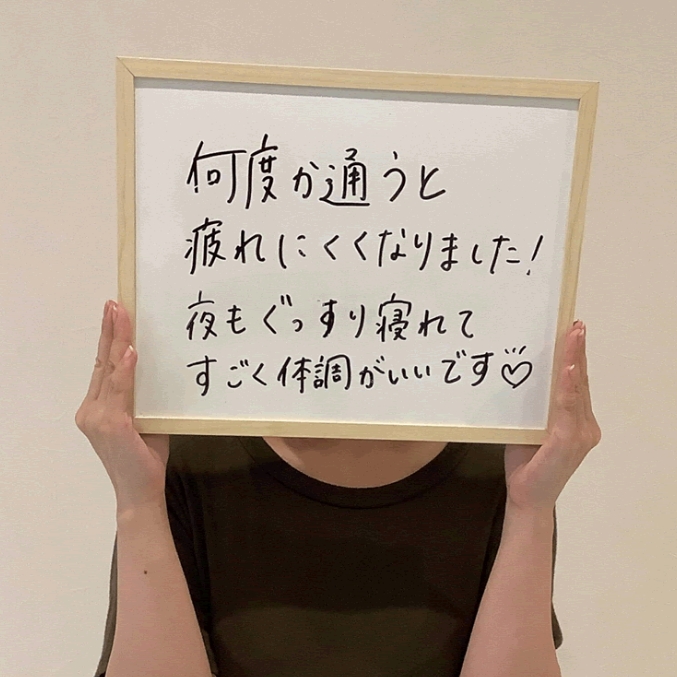 何度か通うと
疲れにくくなりました!
夜もぐっすり寝れて
すごく体調がいいです♡